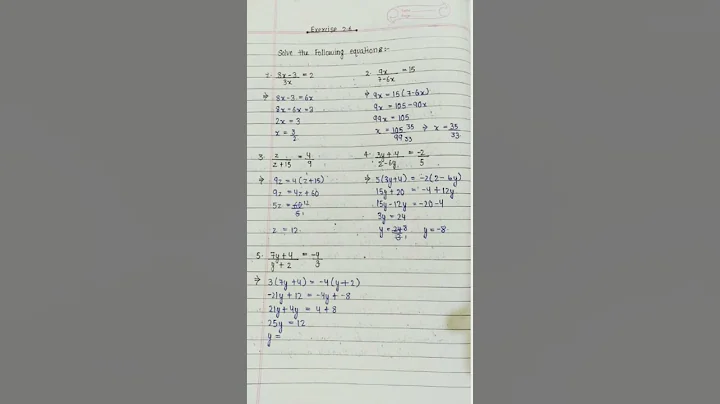 Exercise 2.6
Solve the following equations:-
1. 8x-3/3x = 2
⇒ 8x-3 = 6x
8x-6x = 3
2x = 3
x = 3/2
2. 9x/7-6x = 15
⇒ 9x = 15(7-6x)
9x = 105-90x
99x = 105
x = 105 35/99 33 ⇒ x = 35/33
3. z/z+15 = 4/9
⇒ 9z = 4(z+15)
9z = 4z+60
5z = 60 4/5
z = 12
4. 3y+4/2-6y = -2/5
⇒ 5(3y+4) = -2(2-6y)
15y+20 = -4+12y
15y-12y = -20-4
3y = 24
y = 24 8/3 1 y = -8
5. 7y+4/y+2 = -4/3
⇒ 3(7y+4) = -4(y+2)
-21y+12 = -4y+-8
21y+4y = 4+8
25y = 12
y =